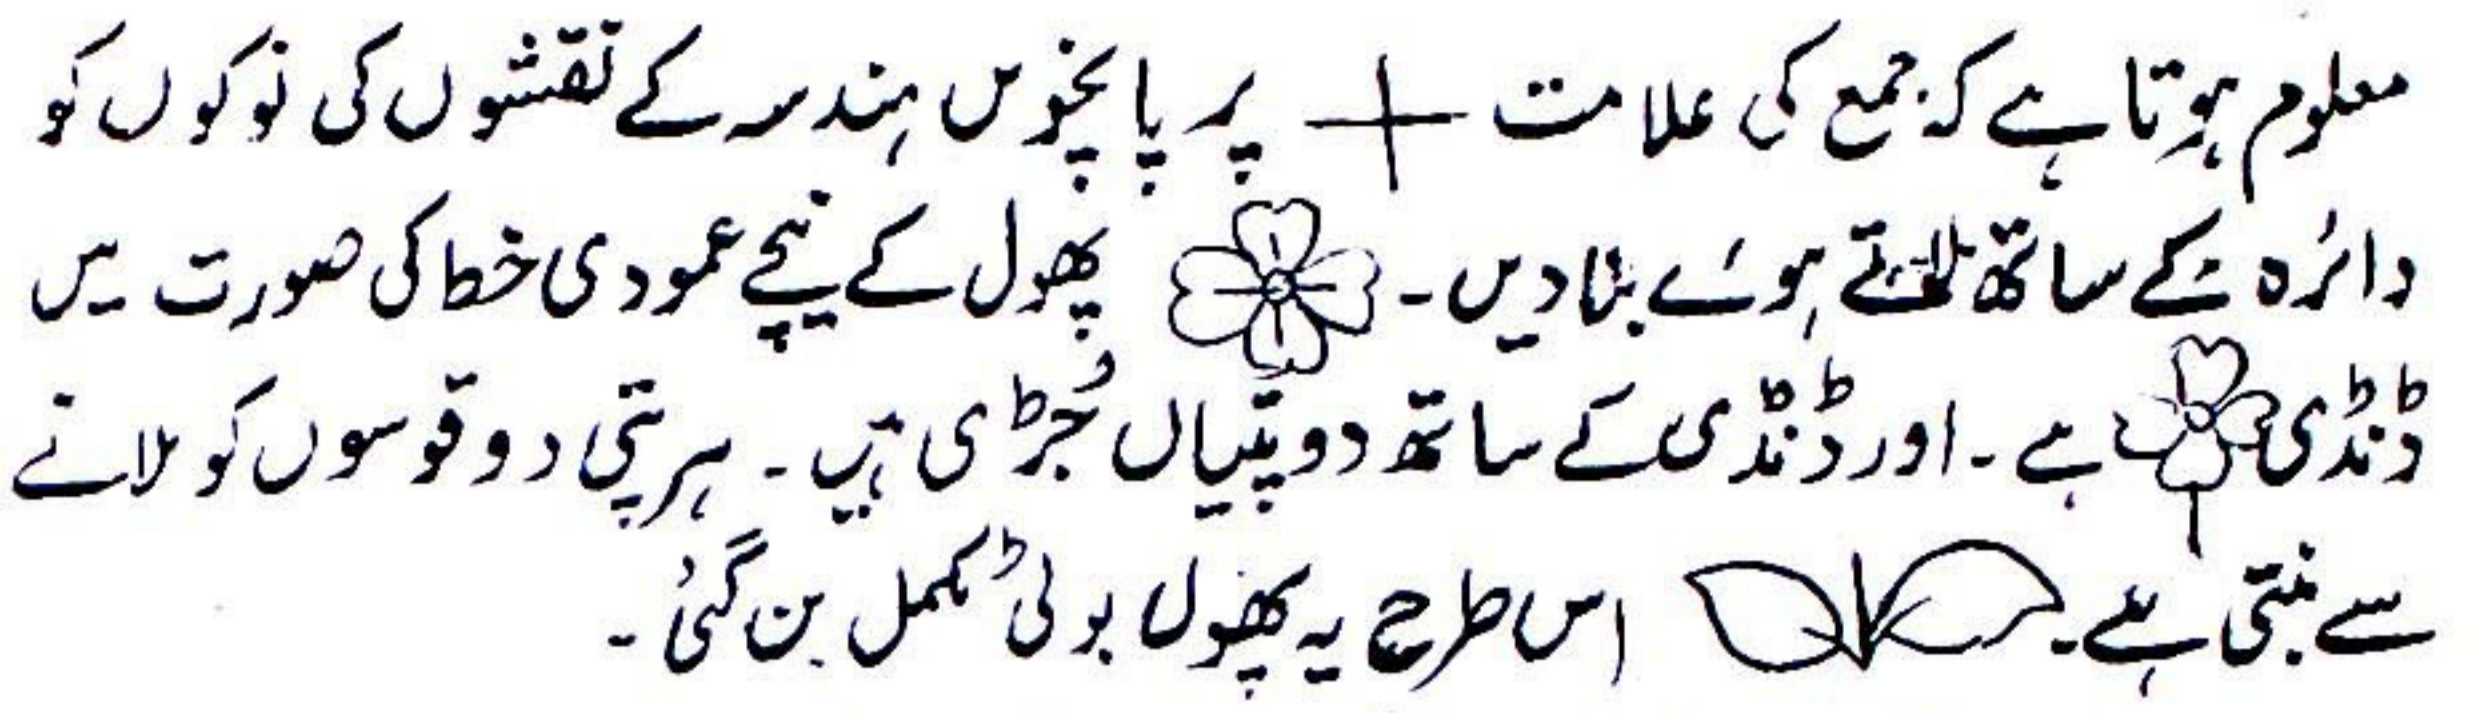 معلوم ہوتا ہے کہ جمع کی علامت + پر پانچویں ہندسہ کے نقشوں کی نوکوں کو
دائرہ کے ساتھ ملاتے ہوئے بنا دیں۔ پھول کے نیچے عمودی خط کی صورت میں
ڈنڈی ہے۔ اور ڈنڈی کے ساتھ دو پتیاں جُڑی ہیں۔ ہر پتی دو قوسوں کو ملانے
سے بنتی ہے۔ اس طرح یہ پھول بوٹی مکمل بن گئی۔